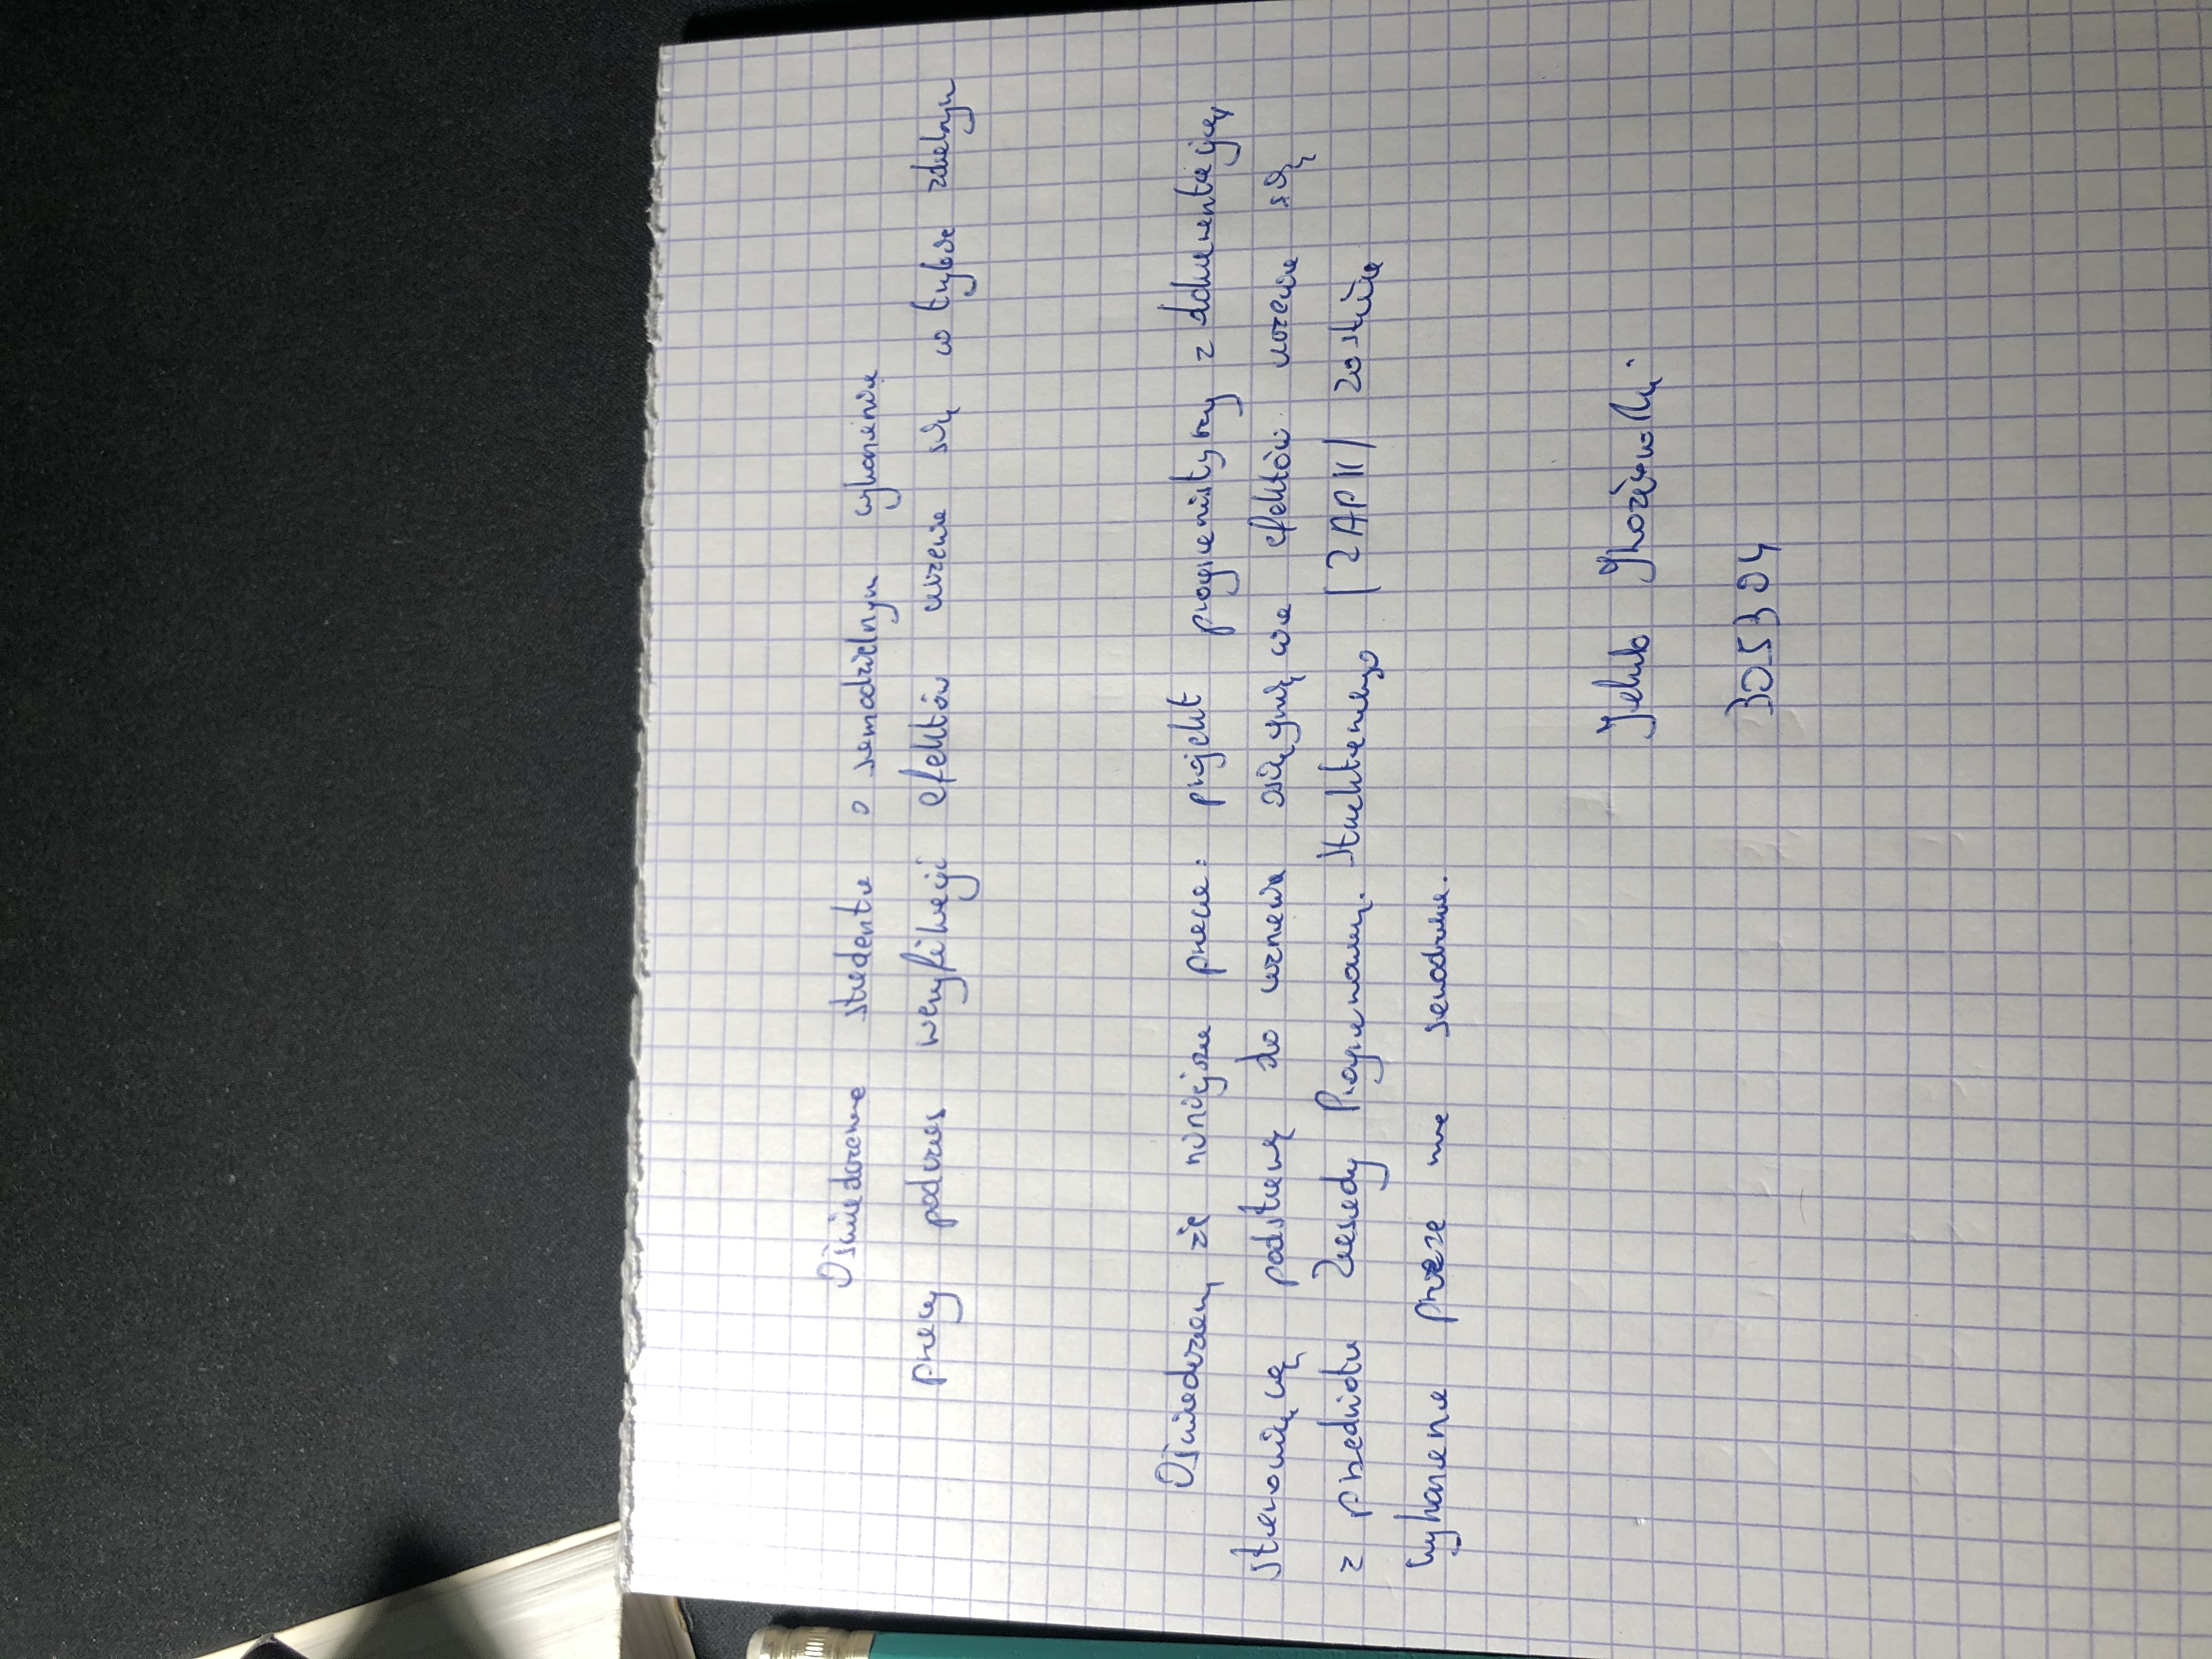 Oświadczenie studenta o samodzielnym wykonaniu
pracy podczas weryfikacji efektów uczenia się w trybie zdalnym
Oświadczam, że niniejsza praca: projekt programistyczny z dokumentacją,
stanowiącą podstawę do uznania osiągnięcia efektów uczenia się
z przedmiotu Zasady Programowan. Strukturalnego (ZAP II) została
wykonana przeze mnie samodzielnie.
Jakub
305304